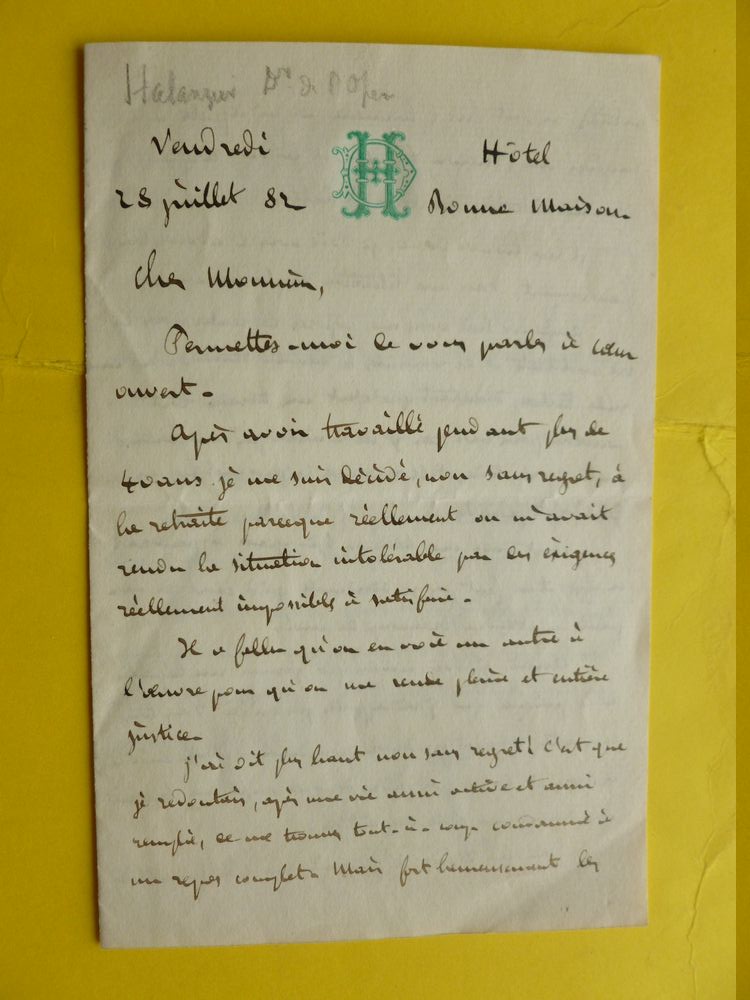 Halanzier Dr de l'Opera
Vendredi
28 juillet 82
Hôtel
Bonne Maison
Cher Monsieur,
Permettes-moi de vous parler à cœur
ouvert.
Après avoir travaillé pendant plus de
40 ans je me suis décidé, non sans regret, à
la retraite parceque réellement on m'avait
rendu la situation intolérable par des éxigences
réellement impossibles à satisfaire.
Il a fallu qu'on en voie un autre à
l'œuvre pour qu'on me rende pleine et entière
justice.
j'ai dit plus haut non sans regret! c'est que
je redoutais, après une vie aussi active et aussi
remplie, de me trouver tout-à-coup condamné à
un repos complet. Mais fort heureusement les